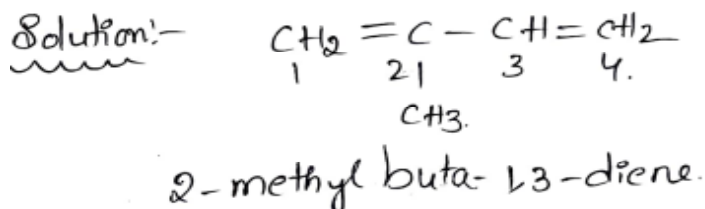 Solution:-  CH2 = C - CH = CH2
1 2| 3 4.
CH3.
2-methyl buta-1,3-diene.